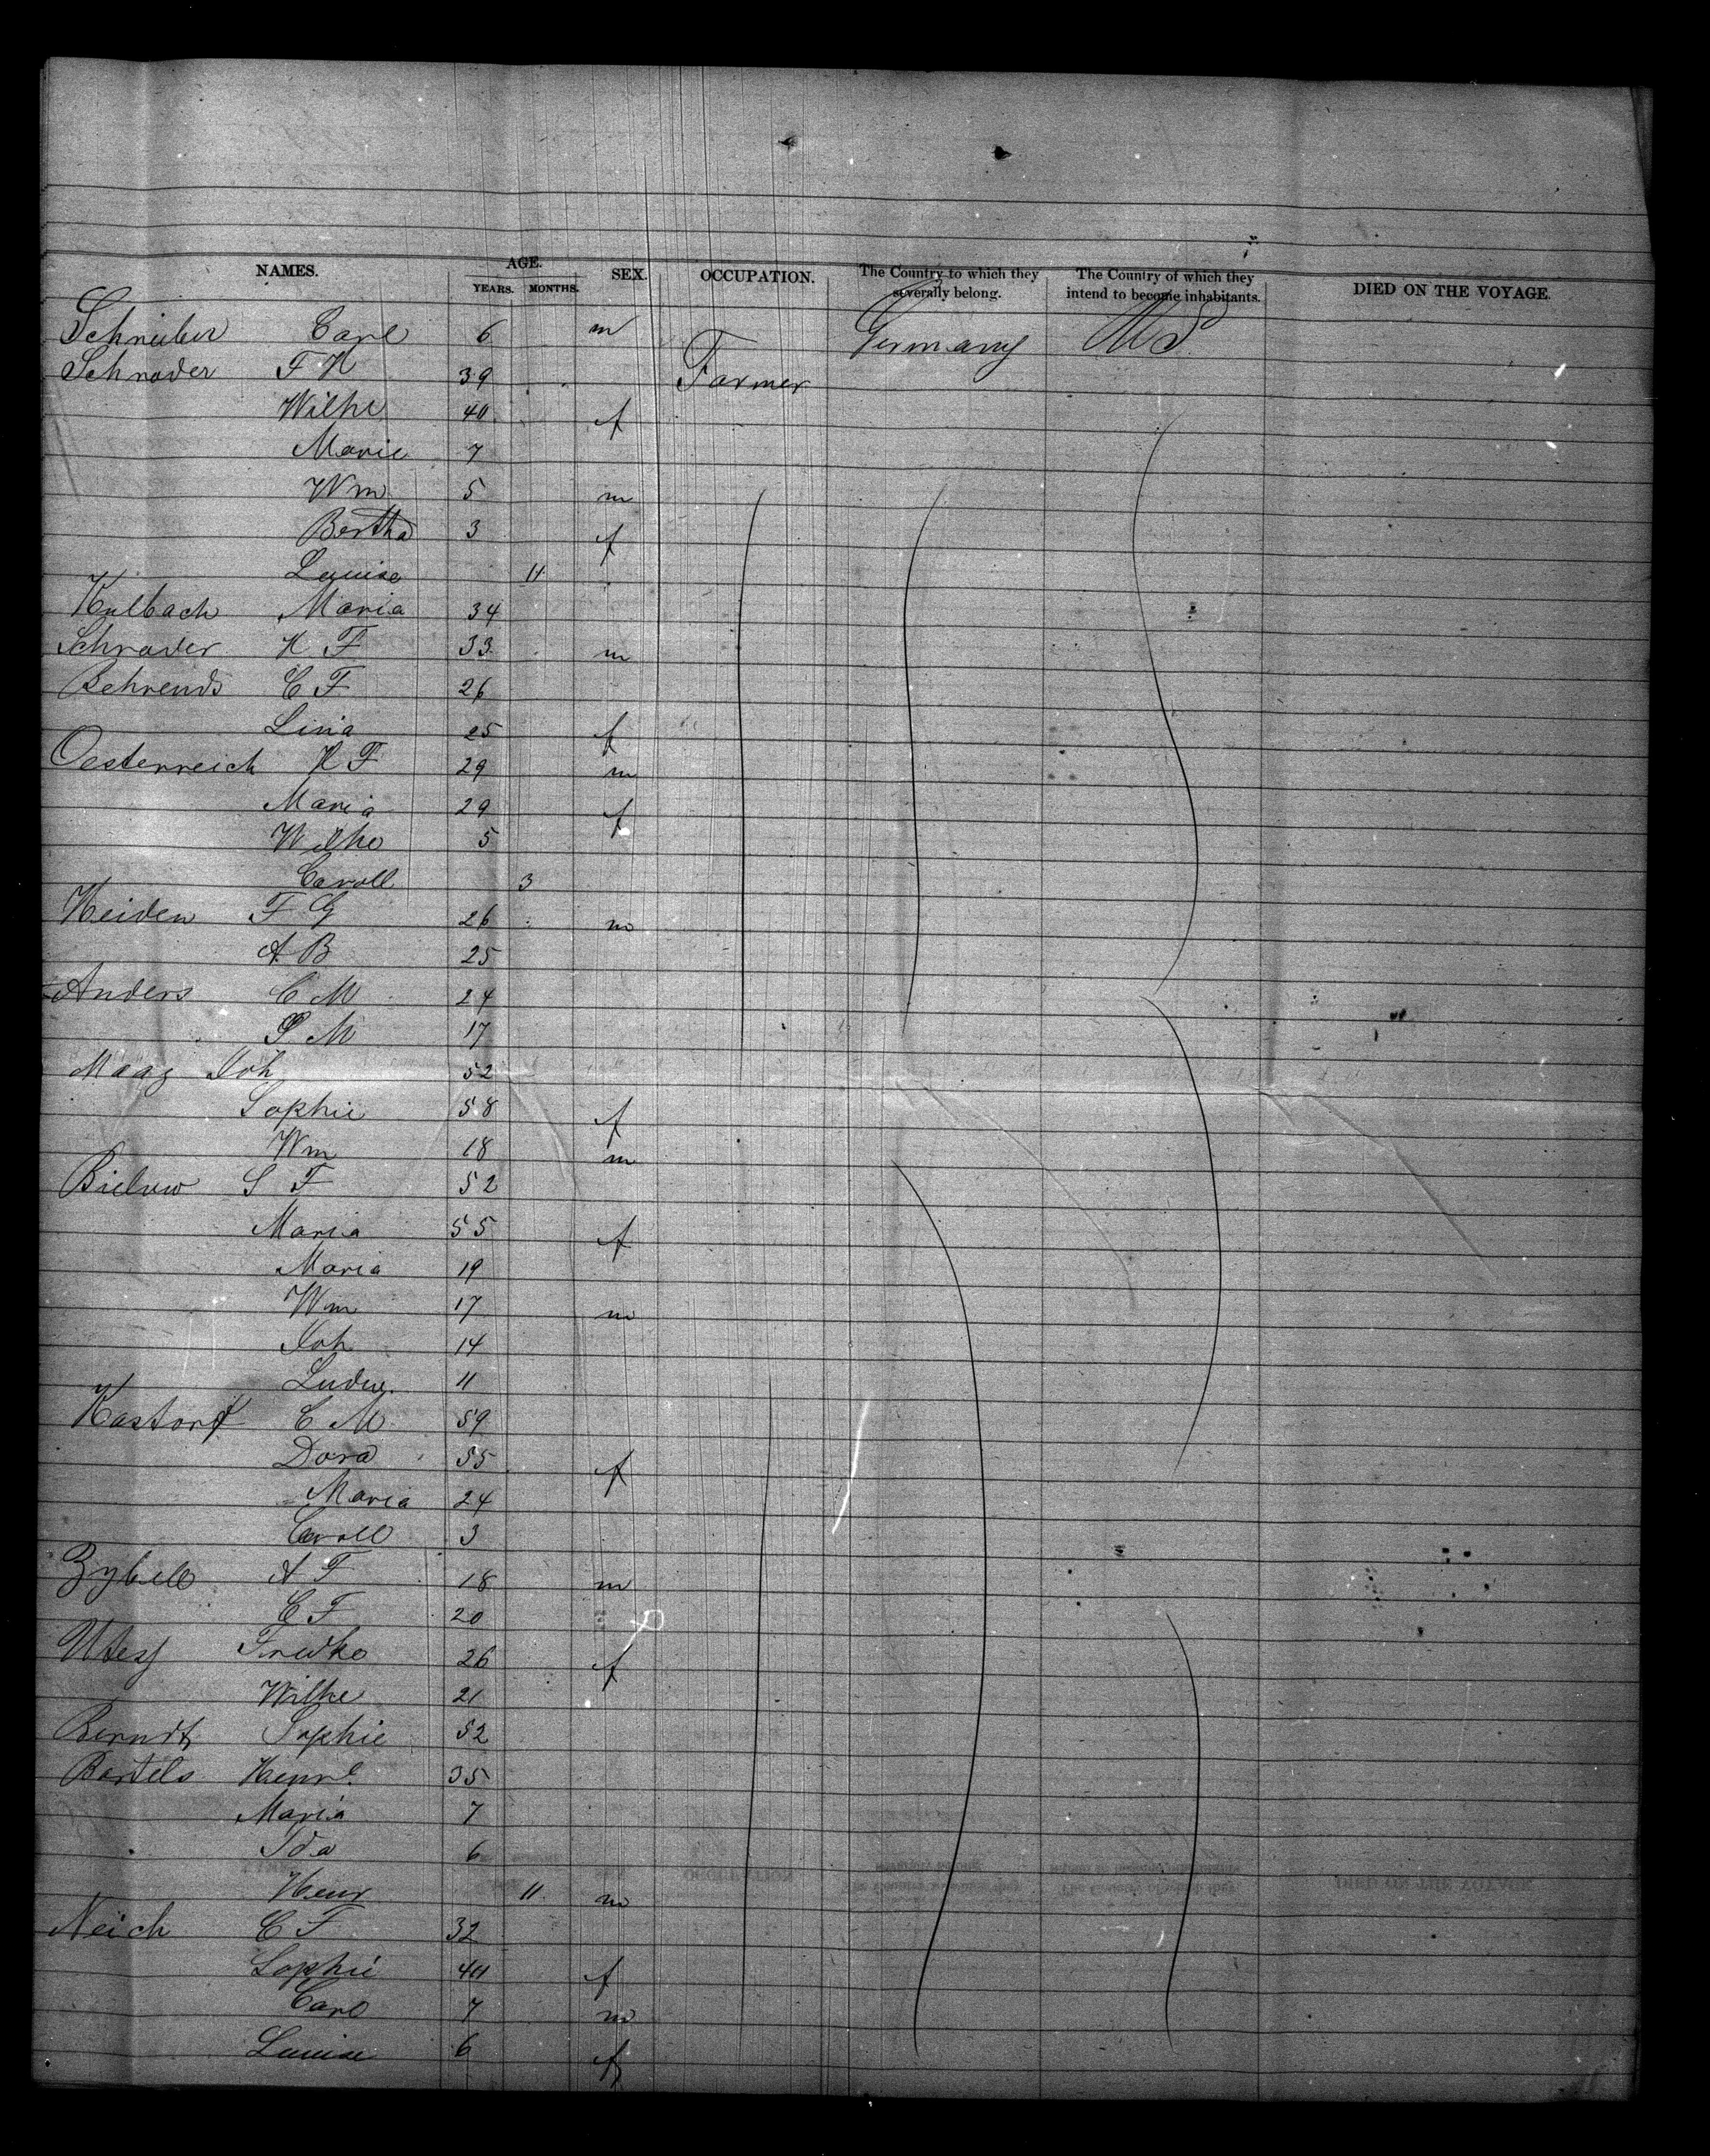 NAMES. AGE. YEARS. MONTHS. SEX. OCCUPATION. The Country to which they severally belong. The Country of which they intend to become inhabitants. DIED ON THE VOYAGE.
Schreiber Carl 6 m Germany US
Schrader F H 39 Farmer
Wilhe 40 f
Marie 7
Wm 5 m
Bertha 3 f
Louise 11
Kulbach Maria 34
Schrader H F 33 m
Behrends C F 26
Lina 25 f
Oesterreich H F 29 m
Maria 29 f
Wilhe 5
Caroll 3
Heiden F G 26 m
A B 25
Anders C M 24
S M 17
Maag Joh 52
Sophie 58 f
Wm 18 m
Bielow S F 52
Maria 55 f
Maria 19
Wm 17 m
Joh 14
Ludw. 11
Kastorf C M 59
Dora 55 f
Maria 24
Caroll 3
Zybell A F 18 m
C F 20
26 f
Wilhe 21
Berndt Sophie 52
Bartels Henre 35
Maria 7
Ida 6
Henr 11 m
Neich C F 32
Sophie 40 f
Carl 7 m
Louise 6 f